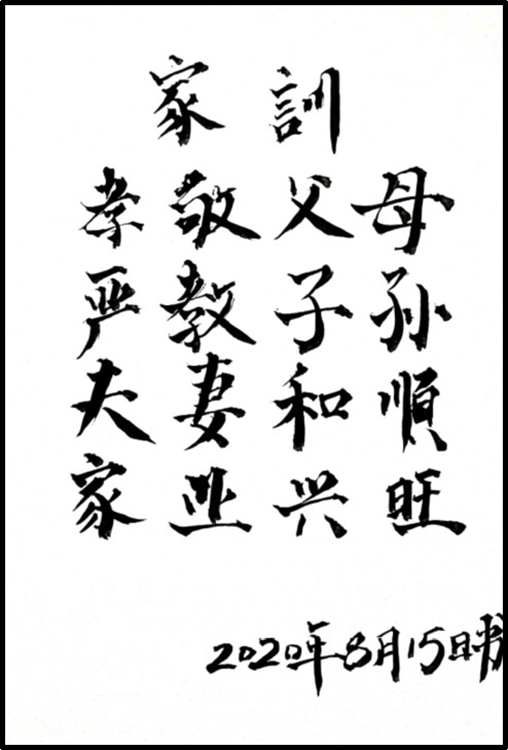 家訓
孝敬父母
严教子孙
夫妻和順
家业兴旺
2020年8月15日书